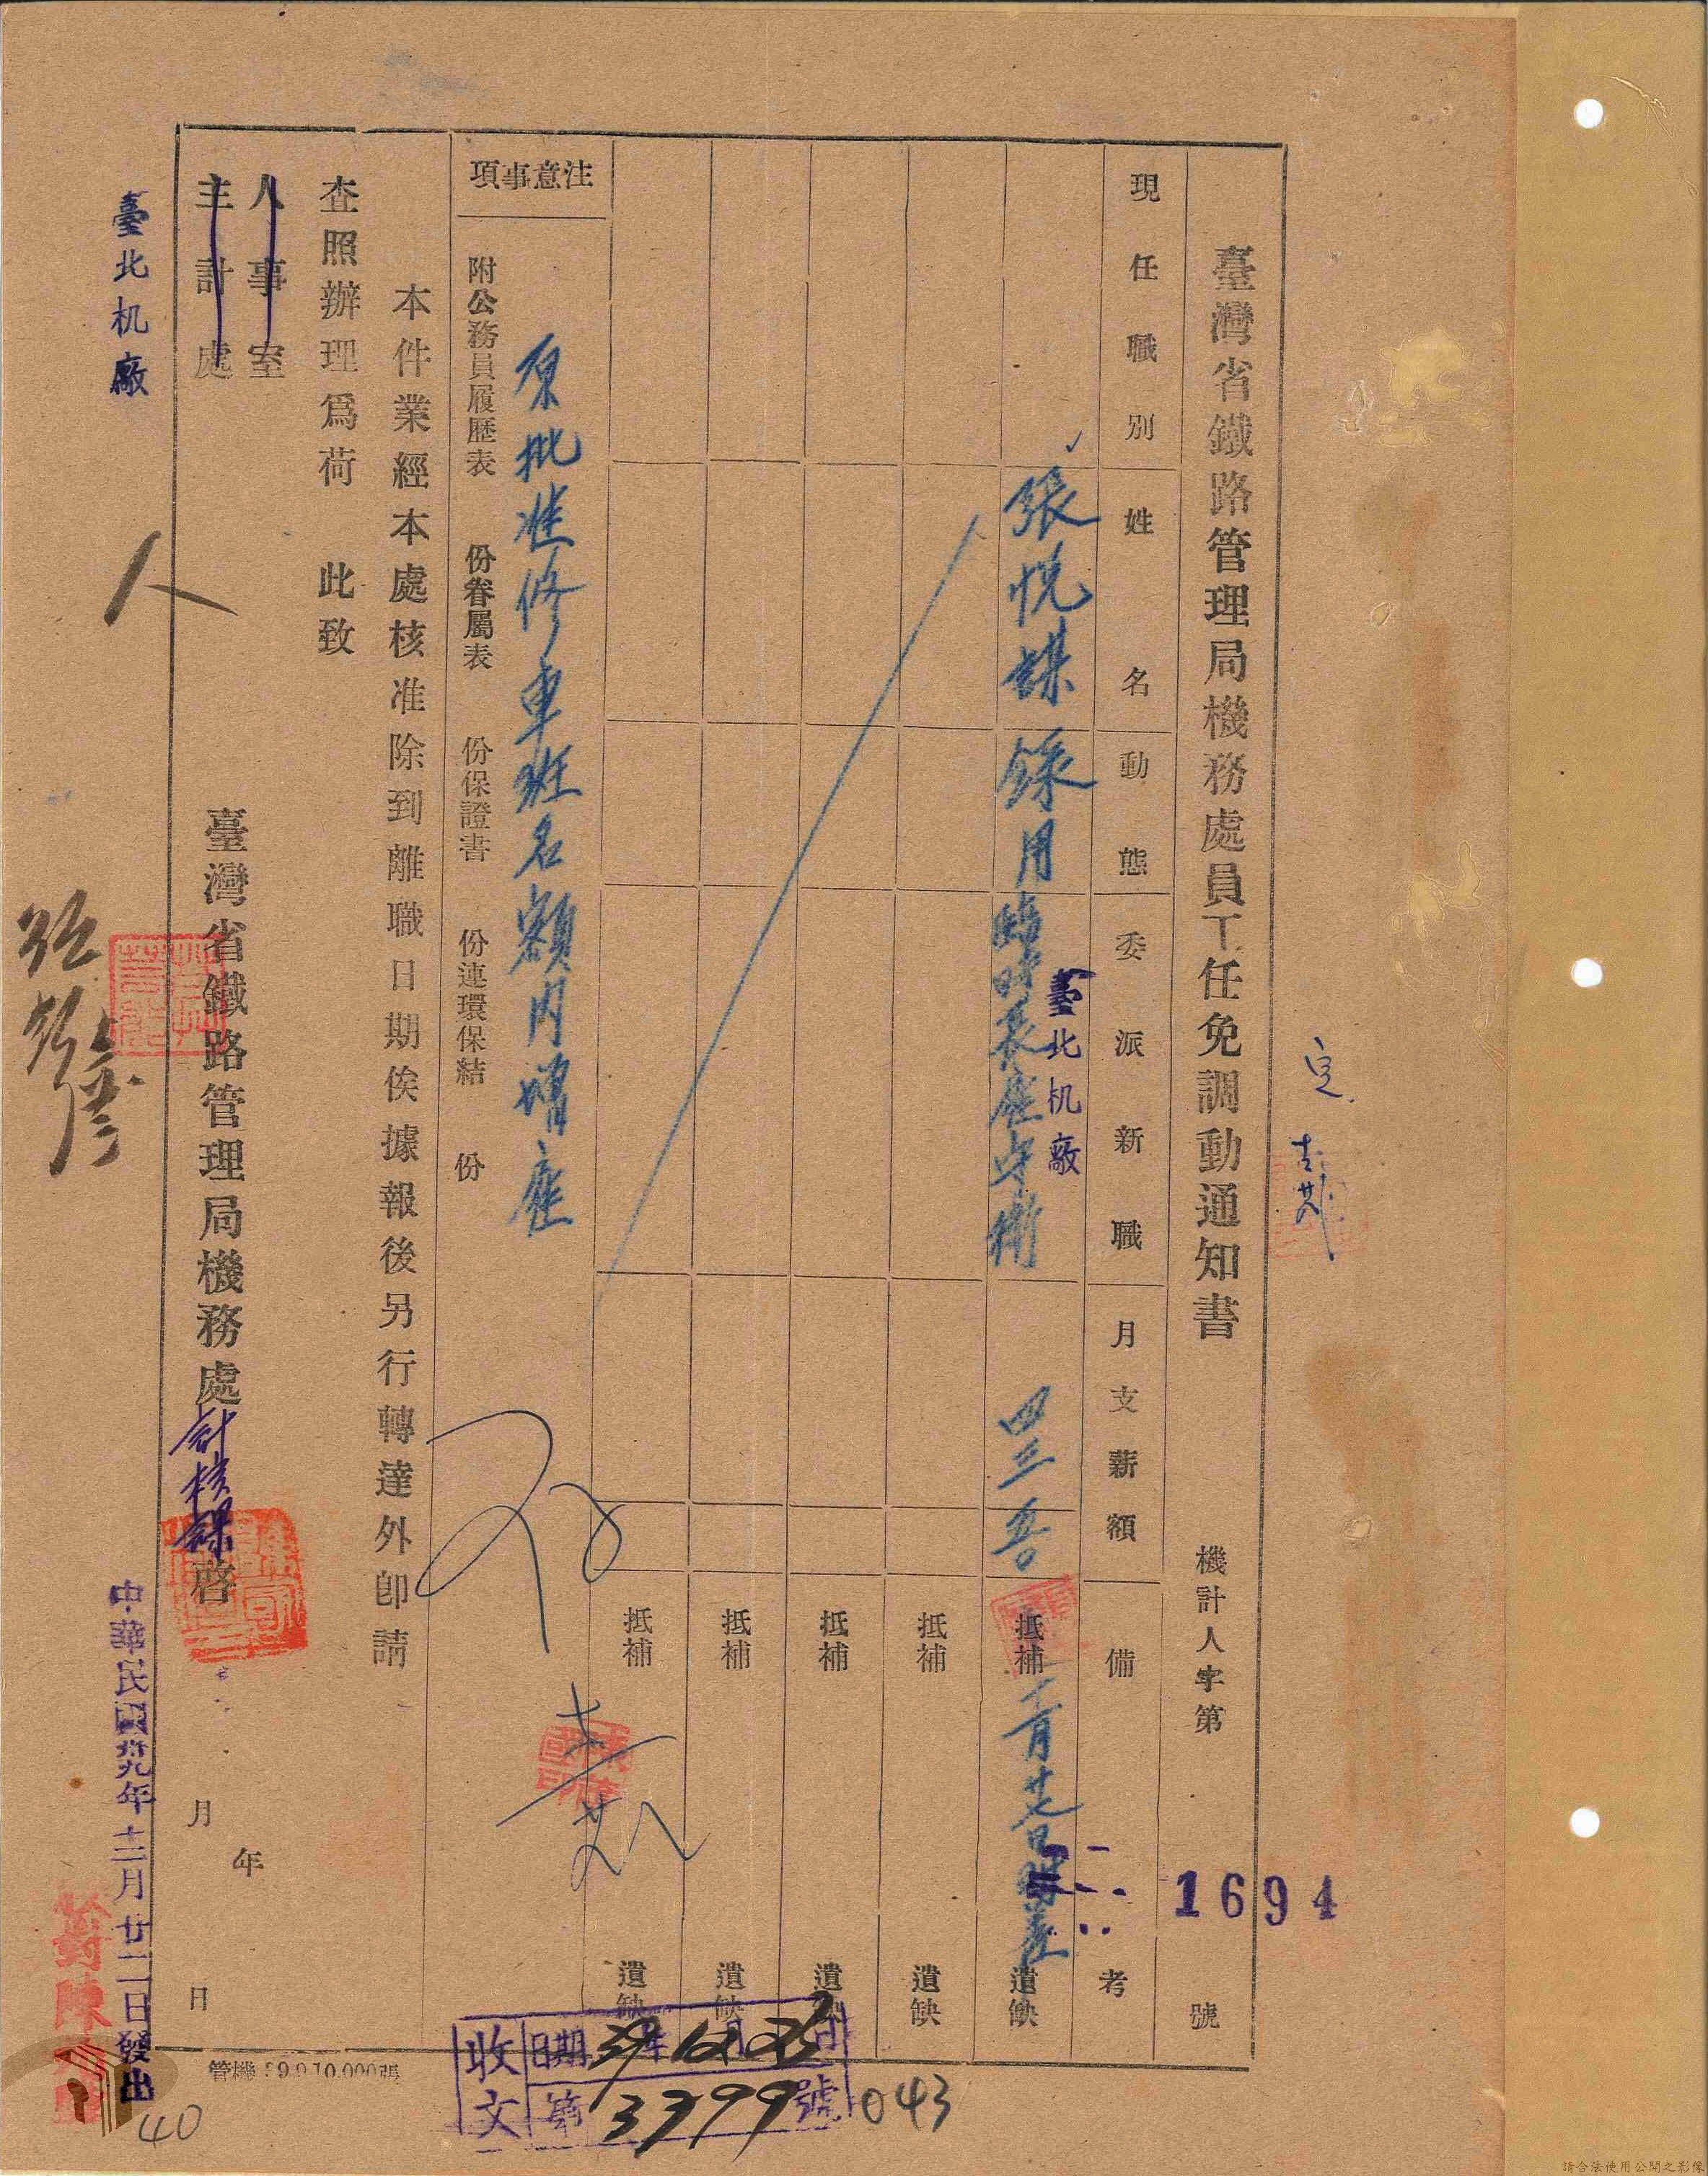 臺灣省鐵路管理局機務處員工任免調動通知書
機計人字第1694號
現任職別
姓名
動態
委派新職
月支薪額
備考
張悅
錄用
臺北机廠
臨時長雇守衛
抵補
遺缺
抵補
遺缺
抵補
遺缺
抵補
遺缺
抵補
遺缺
注意事項
原批准修車班名額內增雇
附公務員履歷表 份眷屬表 份保證書 份連環保結 份
本件業經本處核准除到離職日期俟據報後另行轉達外卽請
查照辦理爲荷 此致
人事室
主計處
臺北机廠
臺灣省鐵路管理局機務處計核課啓
年
月
日
中華民國卅九年十二月廿二日發出
人
收文
日期39年12月23日
第3799號
043
40
請合法使用公開之影像